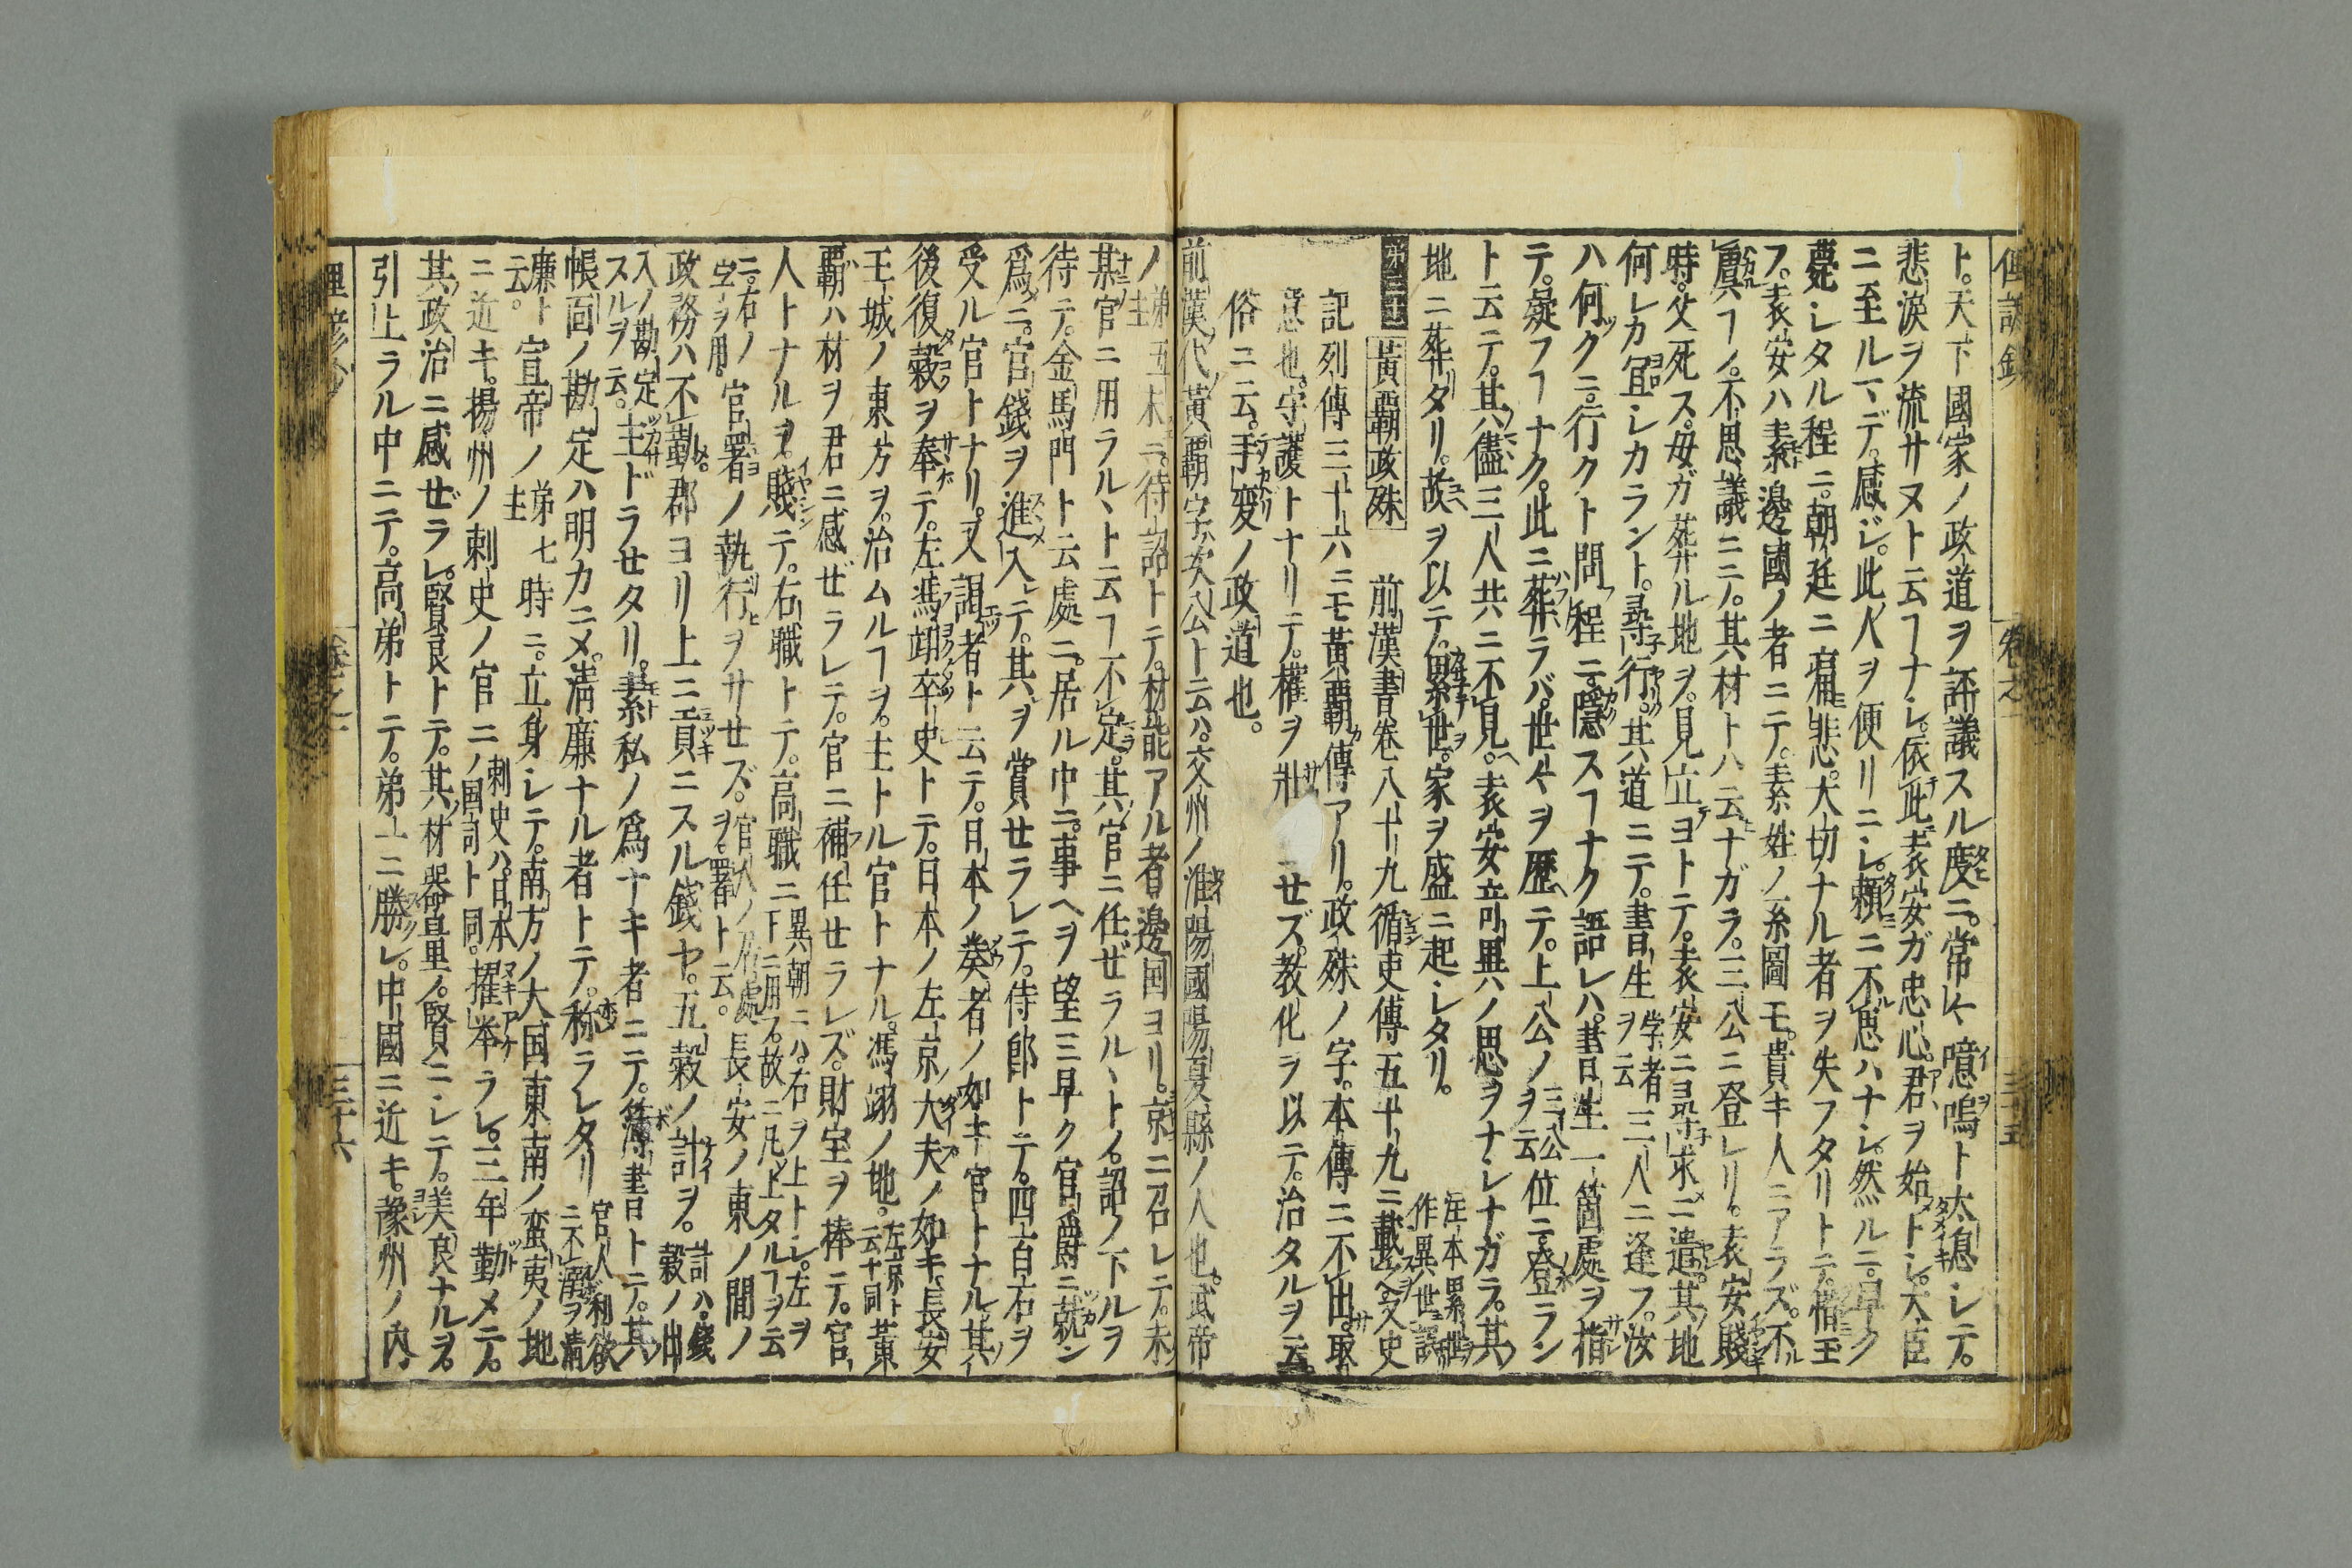 ト。天下國家ノ政道ヲ評議スル度ニ。常ニ噫嗚ト太息シテ。
悲涙ヲ流サヌト云ヿナシ。依此袁安ガ忠心。君ヲ始トシ。大臣
ニ至ルマデ。感ジ。此人ヲ便リニシ。頼ニ不思ハナシ。然ルニ。早ク
薨シタル程ニ。朝廷ニ痛悲。大切ナル者ヲ失フタリトテ。惜玉
フ。袁安ハ素邊國ノ者ニテ。素姓ノ系圖モ。貴キ人ニアラズ。不
真ヿノ。不思議ニ二ノ。其材トハ云ナガラ。三公ニ登レリ。袁安賤
時。父死ス。母ガ葬ル地ヲ。見立ヨトテ。袁安ニ尋求ニ遣。其地
何レカ宜シカラント。尋行。其道ニテ。書生 学者ヲ云 三人ニ逢フ。汝
ハ何クニ行クト問程ニ。隱スヿナク語レハ。書生一箇處ヲ指
テ。疑フヿナク。此ニ葬ラバ。世々ヲ歴テ。上公ノ 三公ヲ云 位ニ登ラン
ト云ニテ。其儘三人共ニ不見。袁安竒異ノ思ヲナシナガラ。其
地ニ葬タリ。故ヲ以テ。累世。家ヲ盛ニ起シタリ。 註本累世作異世誤
黃覇政殊 前漢書卷八十九循吏傳五十九ニ載ス。史
記列傳三十六ニモ黃覇傳アリ。政殊ノ字。本傳ニ不出。取
意也。守護トナリテ。權ヲ 壯 ニセズ。教化ヲ以テ。治タルヲ云。
俗ニ云。手変ノ政道也。
前漢代黃覇字次公ト云ハ。交州ノ淮陽國陽夏縣ノ人也。武帝
ノ 弟五主 末ニ。待詔トテ。材能アル者邊国ヨリ。京ニ召レテ。未
某官ニ用ラルヽト云ヿ不定。其官ニ任ゼラルヽトノ。詔ノ下ルヲ
待テ。金馬門ト云處ニ。居ル中ニ。事ヘヲ望ミ早ク官爵ニ就ン
爲ニ。官錢ヲ進入テ。其ヲ賞セラレテ。侍郎トテ。四百石ヲ
受ル官トナリ。又謁者ト云テ。日本ノ奏者ノ如キ官トナル。其
後復穀ヲ奉テ。左馮翊卒史トテ。日本ノ左京大夫ノ如キ。長安
王城ノ東方ヲ。治ムルヿヲ。主トル官トナル。馮翊ノ地。左京ト云ト同 黃
覇ハ材ヲ君ニ感ゼラレテ。官ニ補任セラレズ。財宝ヲ捧テ。官
人トナルヲ。賤テ。右職トテ。高職ニ 異朝ニハ。右ヲ上トシ。左ヲ下ニ用フ。故ニ凡上タルヿヲ云
ニ。右ノ字ヲ用。 官署ノ執行ヲサセズ。 官人ノ居處ヲ。署ト云。 長安ノ東ノ間ノ
政務ハ不勤。郡ヨリ上ニ貢ニスル錢ヤ。五穀ノ計ヲ。 計ハ。錢穀ノ出
入ノ勘定スルヲ云。 主ドラセタリ。素私ノ爲ナキ者ニテ。簿書トテ。其
帳面ノ勘定ハ明カニメ。清廉ナル者トテ。称ラレタリ 官人利欲ニ不溺ヲ清
廉ト云。 宣帝ノ 弟七主 時ニ。立身シテ。南方ノ大国東南ノ蛮夷ノ地
ニ近キ。揚州ノ刺史ノ官ニノ 刺史ハ。日本国司ト同。 擢挙ラレ。三年勤メテ。
其政治ニ感ゼラレ。賢良トテ。其材器量ノ。賢ニシテ。美良ナルヲ。
引上ラル中ニテ。高弟トテ。弟一ニ勝レ。中國ニ近キ。豫州ノ内。